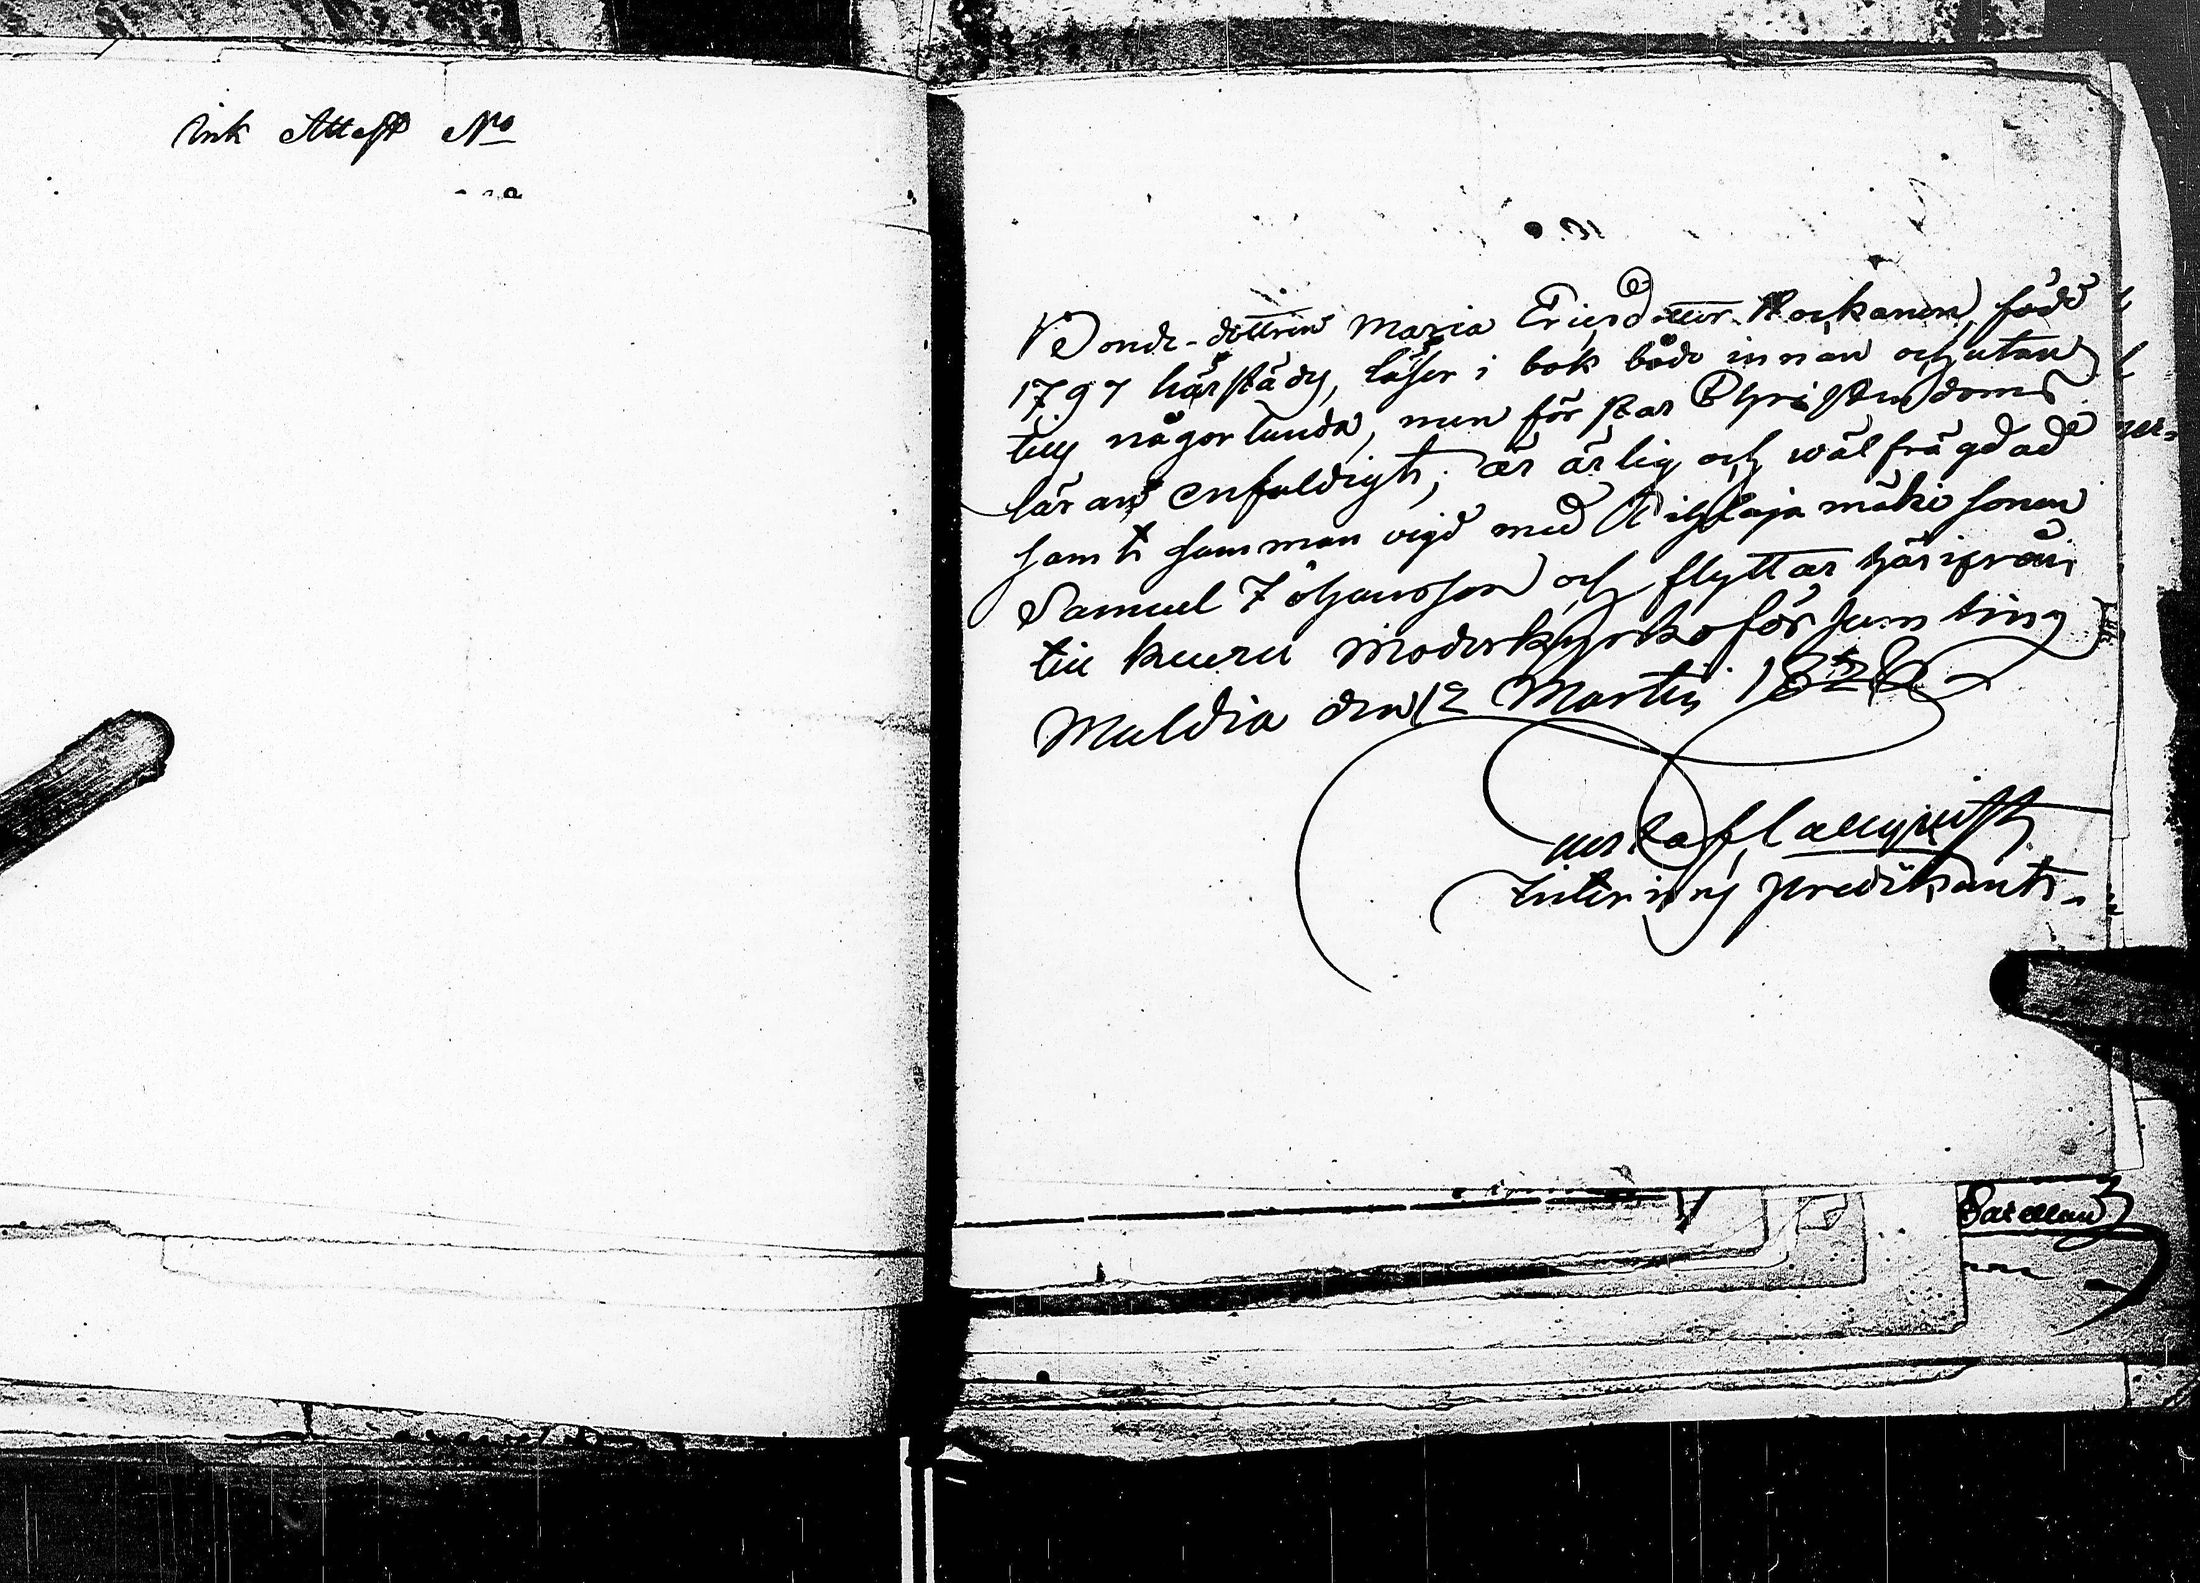 Ink Attest No
Bonde-dottren Maria Ericsdotter Kockanen, född
1797 härstädes, läser i bok både innan och utan
till någorlunda, men förstår Christendoms
läran enfaldigt; är ärlig och wälfrägdad
samt samman vigd med sonen
Samuel Johansson och flyttar härifrån
till Kuru Moderkyrkoförsamling
Muldia den 12 Martii
Gustaf Lallqwist
Interims predikant.